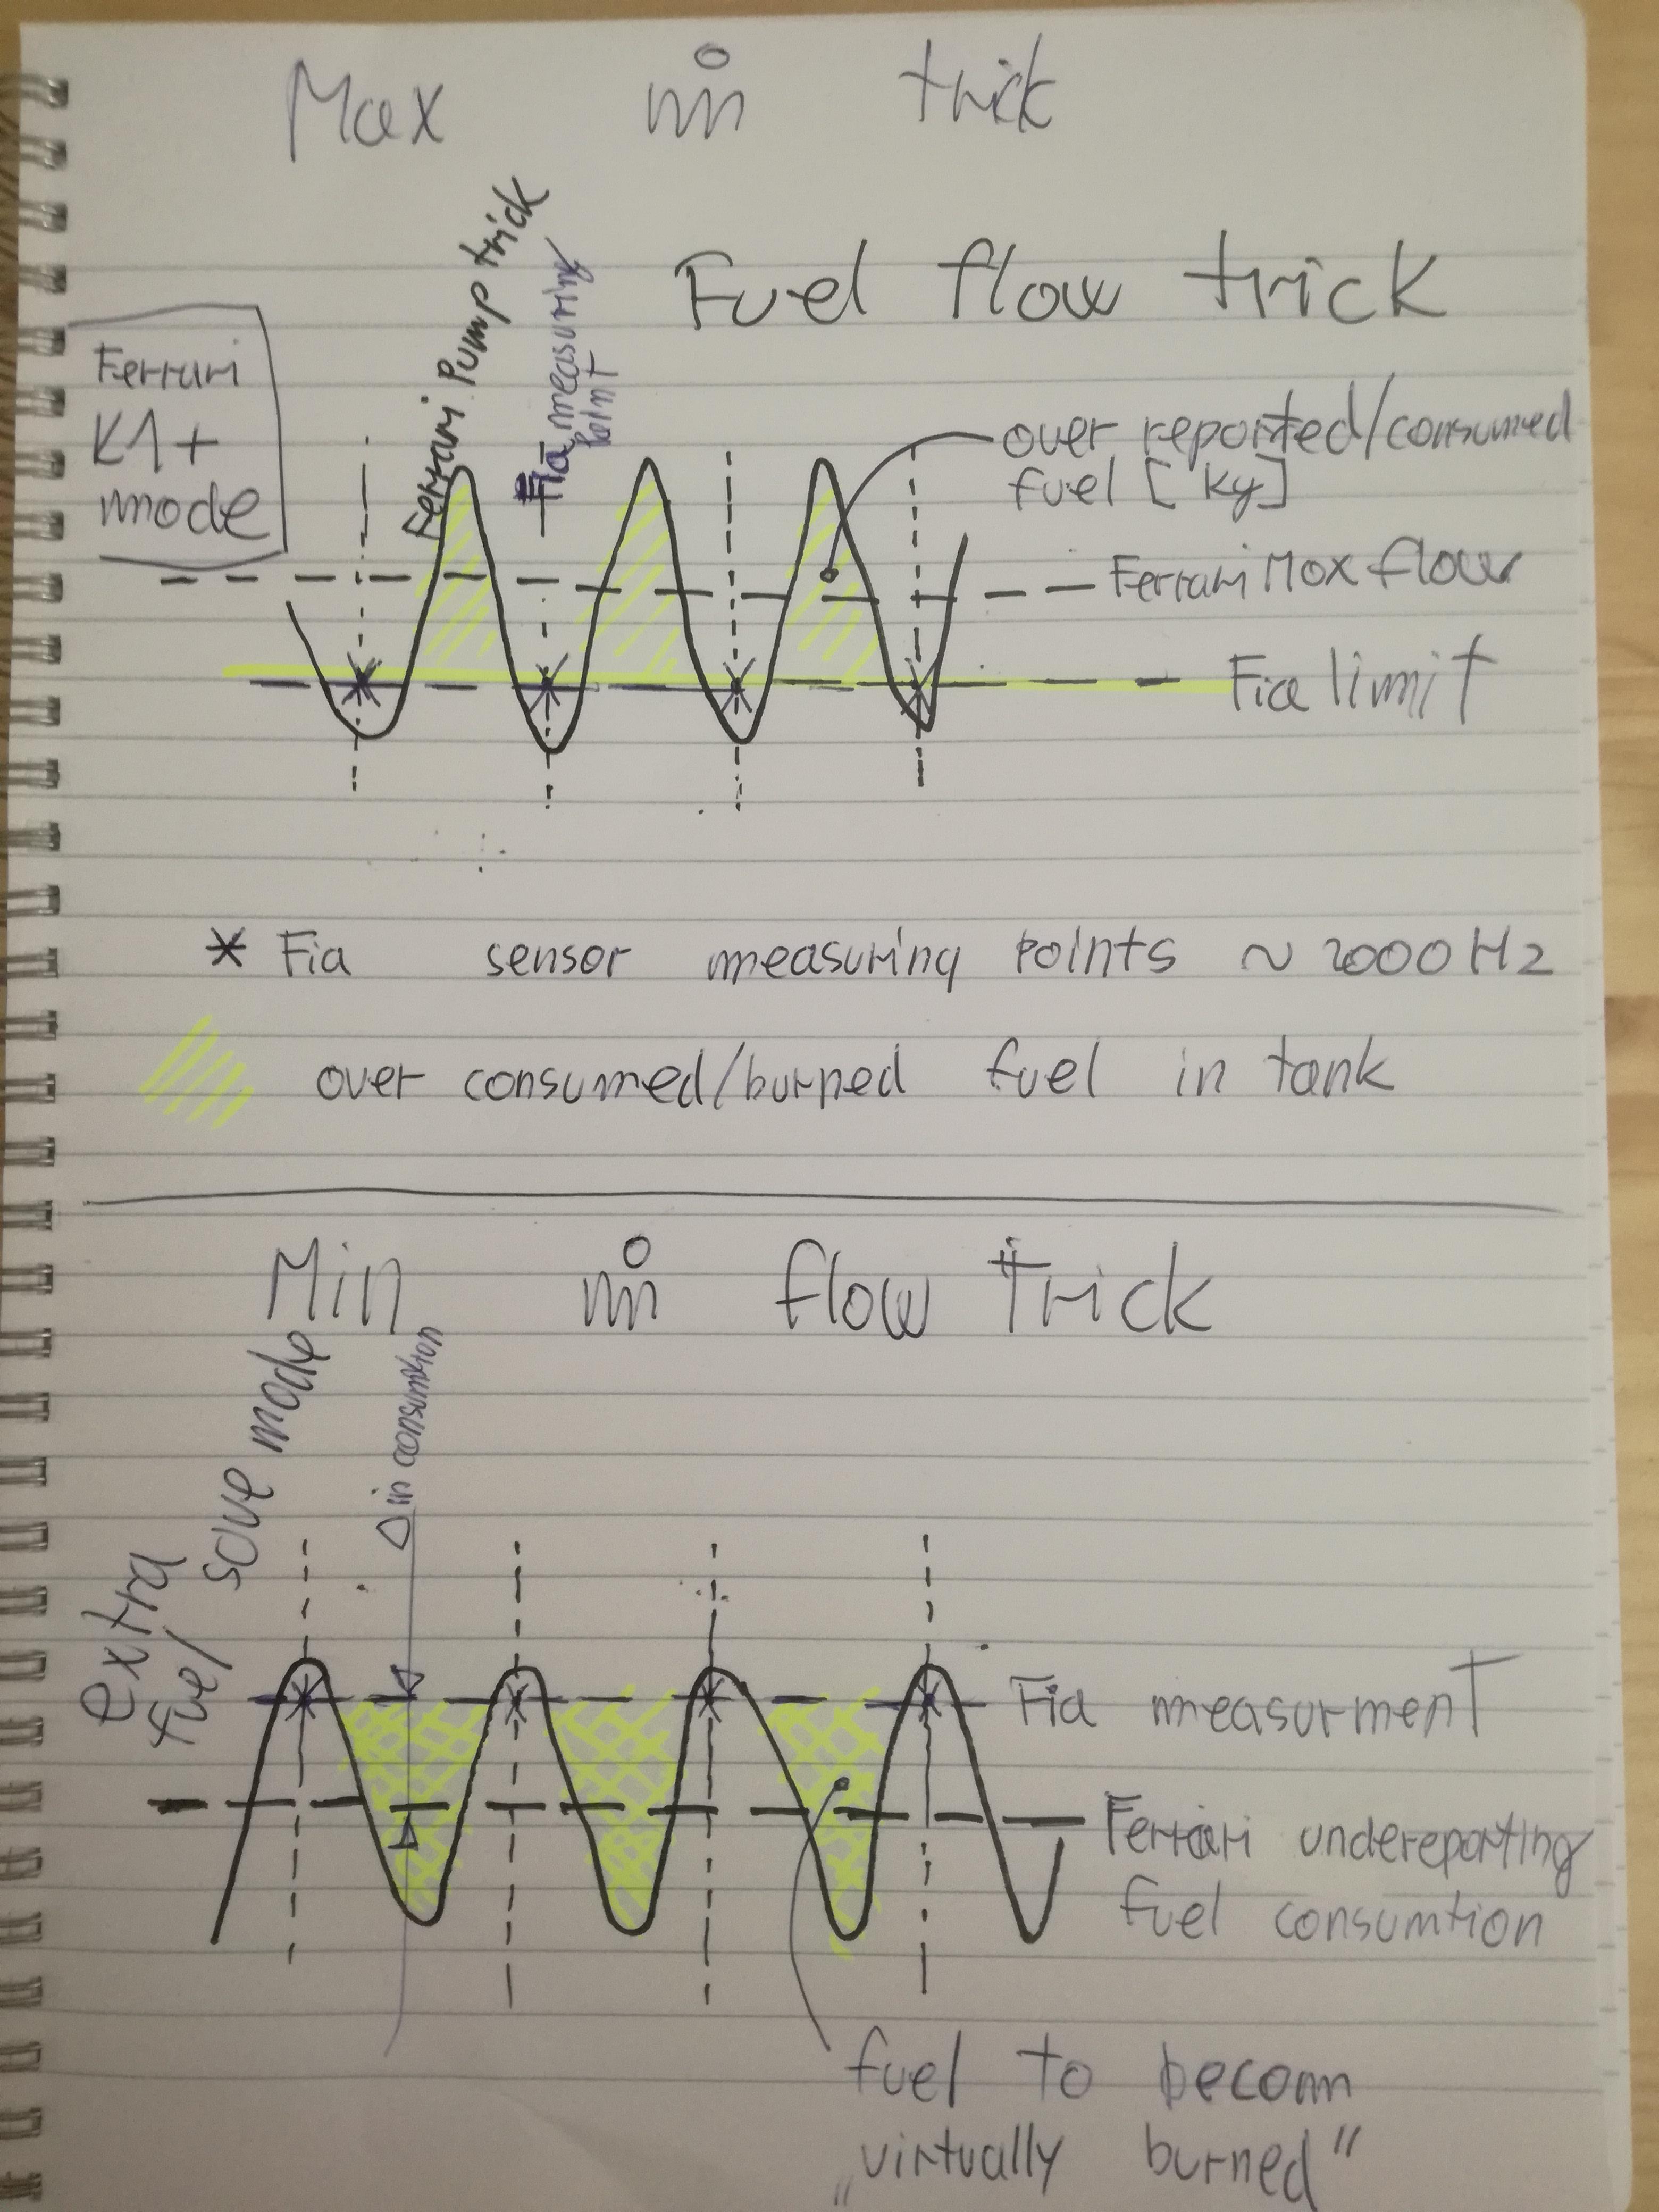 Max ṁ trick
Fuel flow trick
Ferrari
K1+
mode
Ferrari Pump trick
Fia measuring
point
over reported/consumed
fuel [kg]
Ferrari Max flow
Fia limit
* Fia sensor measuring points ~ 2000 Hz
over consumed/burned fuel in tank
Min ṁ flow trick
extra
fuel/
save mode
Δ in consumtion
Fia measurment
Ferrari undereporting
fuel consumtion
fuel to becom
„virtually burned"